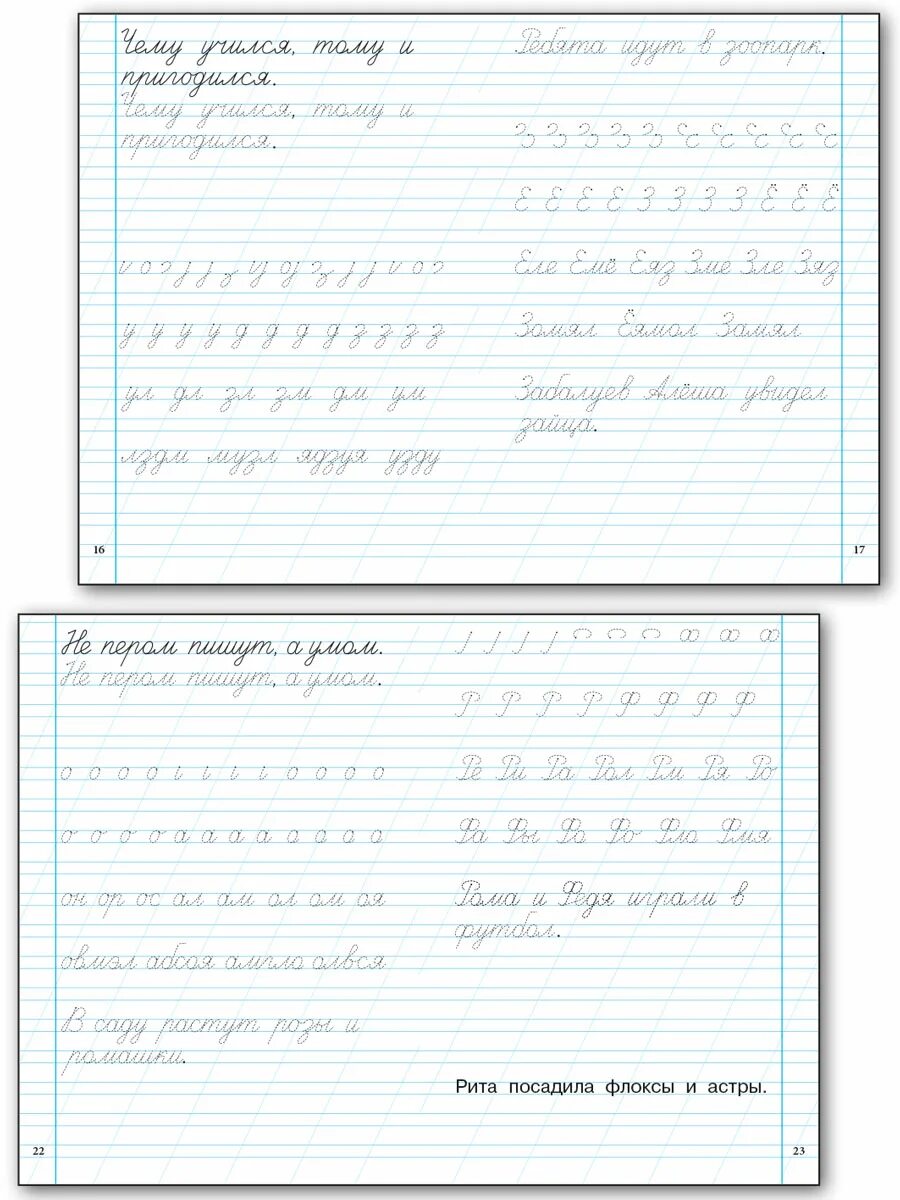 Чему учился, тому и
пригодился.
Чему учился, тому и
пригодился.
у у у у д д д д з з з з
ул дл зл зм дм ум
лздм музл ядзуя узду
16
Ребята идут в зоопарк.
Е Е Е Е З З З З Ё Ё Ё
Еле Емё Еяз Зме Зле Зяз
Зомял Ёямол Замял
Забалуев Алёша увидел
зайца.
17
Не пером пишут, а умом.
Не пером пишут, а умом.
о о о о а а а а а а а
он ор ос ал ам ол ом оя
овмэл абсоя амгло олвся
В саду растут розы и
ромашки.
22
Р Р Р Р Ф Ф Ф Ф
Ре Ри Ра Рол Рм Ря Ро
Фа Фы Фо Фо Фло Фмя
Рома и Федя играли в
футбол.
Рита посадила флоксы и астры.
23